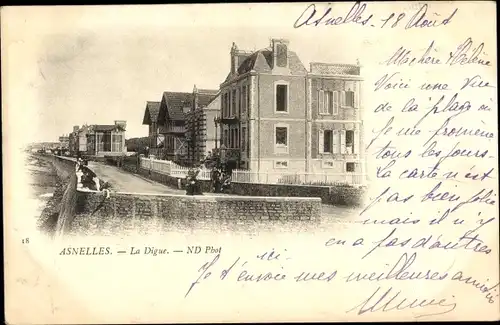 Asnelles 18 Août
Ma chère Hélène
Voici une vue
de la plage où
je me promène
tous les jours.
La carte n'est
pas bien jolie
mais il n'y
en a pas d'autres
18
ASNELLES. — La Digue. — ND Phot
ici
Je t'envoie mes meilleures amitiés